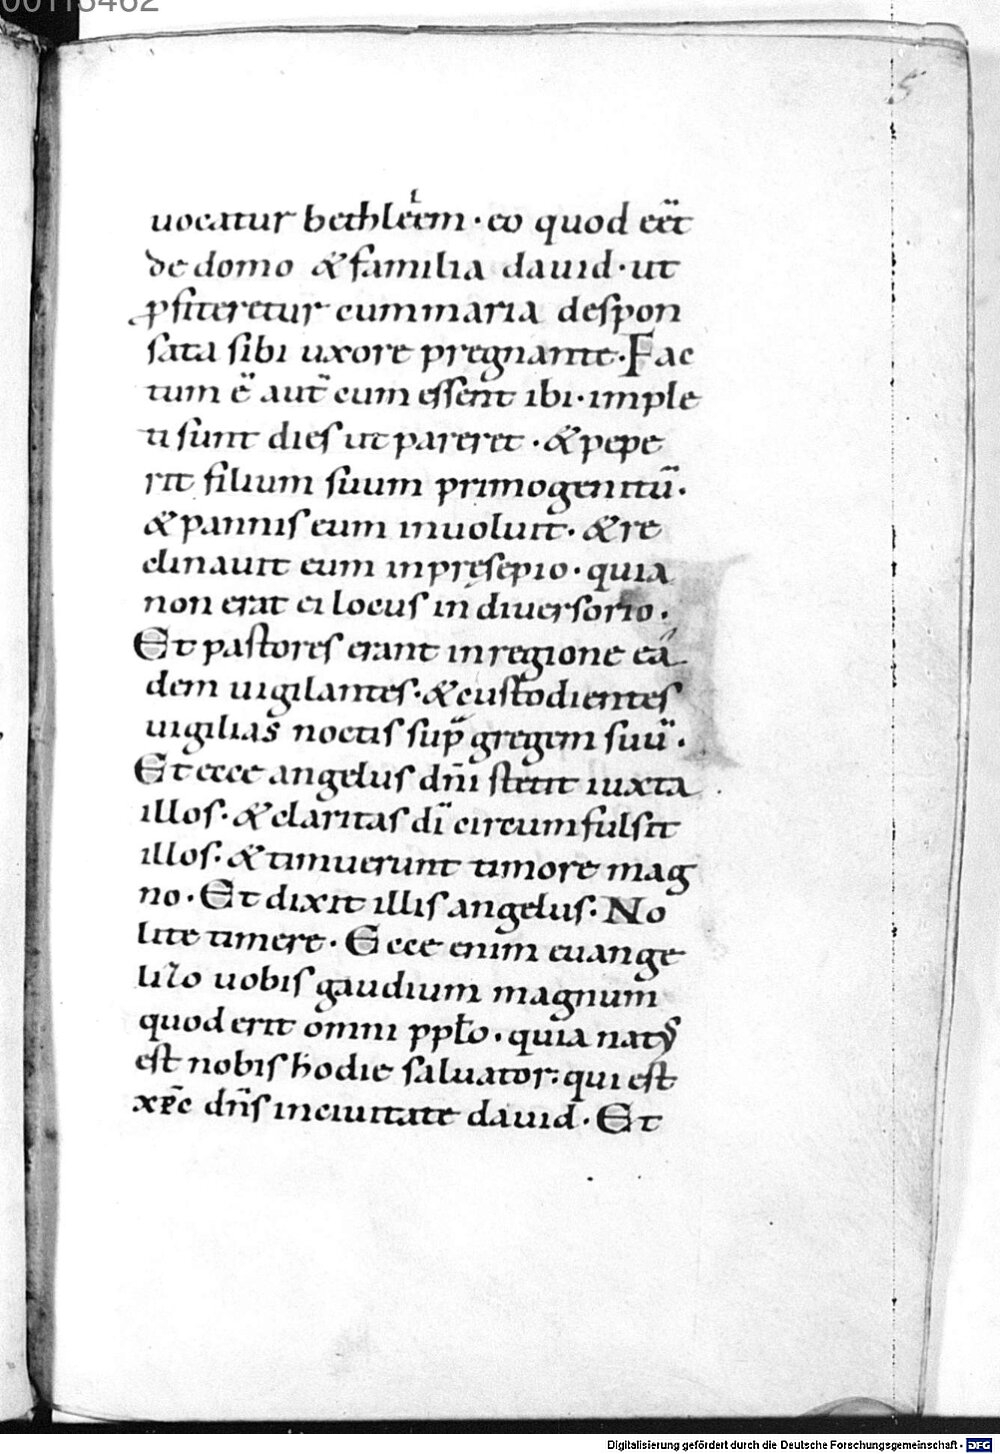 00113462
5
uocatur bethleem · eo quod eēt
de domo & familia dauid · ut
ꝓfiteretur cum maria despon
sata sibi uxore pregnante · Fac
tum ē aut̄ cum essent ibi · imple
ti sunt dies ut pareret · & pepe
rit filium suum primogenitū ·
& pannis eum inuoluit · & re
clinauit eum in pręsepio · quia
non erat ei locus in diuersorio ·
Et pastores erant in regione eá
dem uigilantes · & custodientes
uigilias noctis sup̄ gregem suū ·
Et ecce angelus dn̄i stetit iuxta
illos · & claritas dī circumfulsit
illos · & timuerunt timore mag
no · Et dixit illis angelus · No
lite timere · Ecce enim euange
lizo uobis gaudium magnum
quod erit omni ppło · quia natꝰ
est nobis hodie saluator · qui est
xp̄c dn̄s in ciuitate dauid · Et
Digitalisierung gefördert durch die Deutsche Forschungsgemeinschaft - DFG